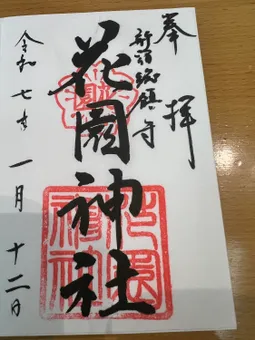 奉拝
新宿総鎮守
花園神社
令和七年一月十二日